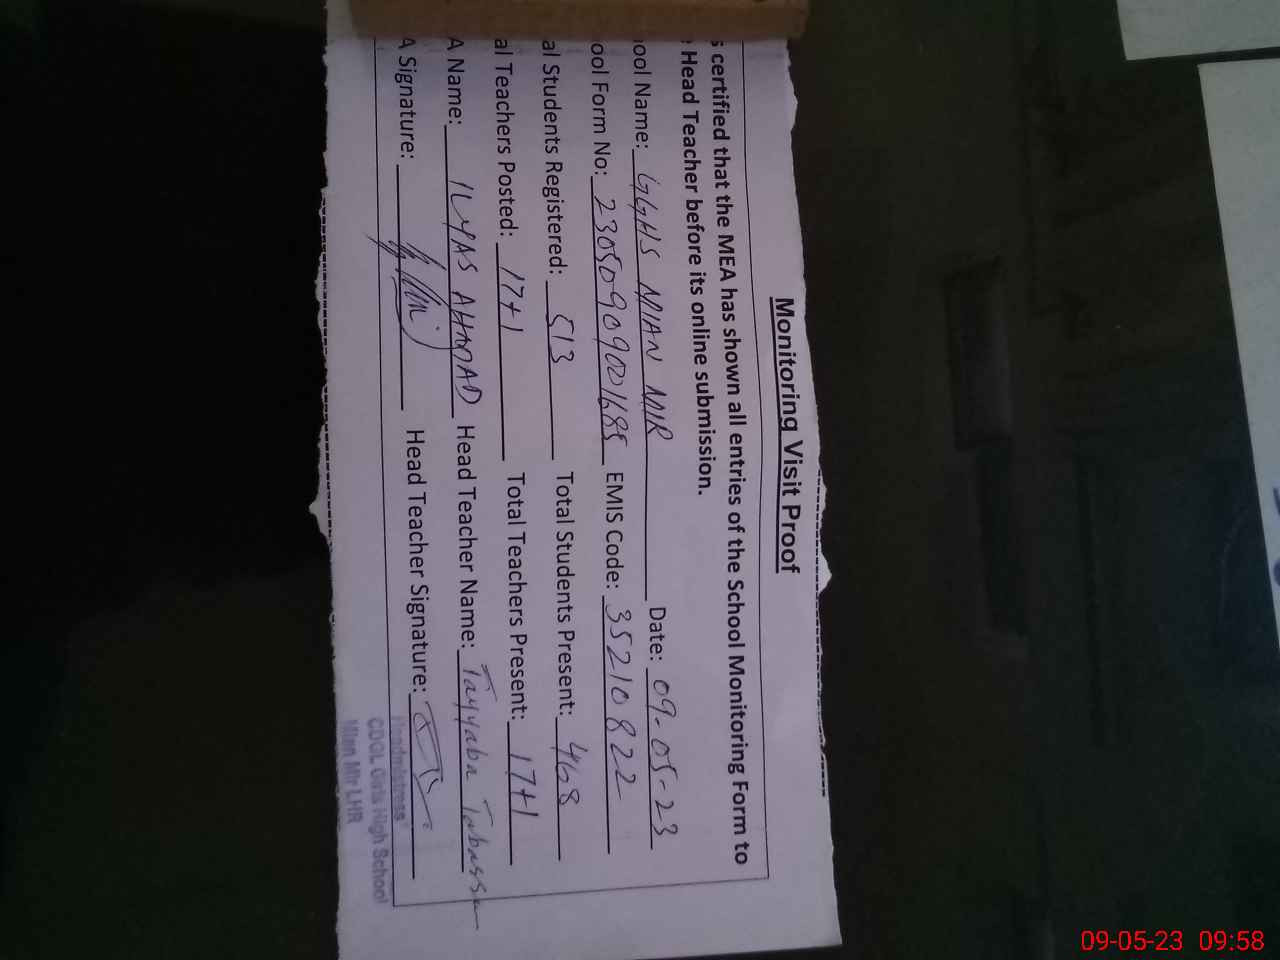 Monitoring Visit Proof
s certified that the MEA has shown all entries of the School Monitoring Form to
Head Teacher before its online submission.
ool Name: GGHS MIAN MIR Date: 09-05-23
ool Form No: 23050909001685 EMIS Code: 35210822
al Students Registered: 513 Total Students Present: 468
al Teachers Posted: 17+1 Total Teachers Present: 17+1
A Name: ILYAS AHMAD Head Teacher Name: Tayyaba Tabassum
A Signature: Head Teacher Signature:
Headmistress
CDGL Girls High School
Mian Mir LHR
09-05-23 09:58